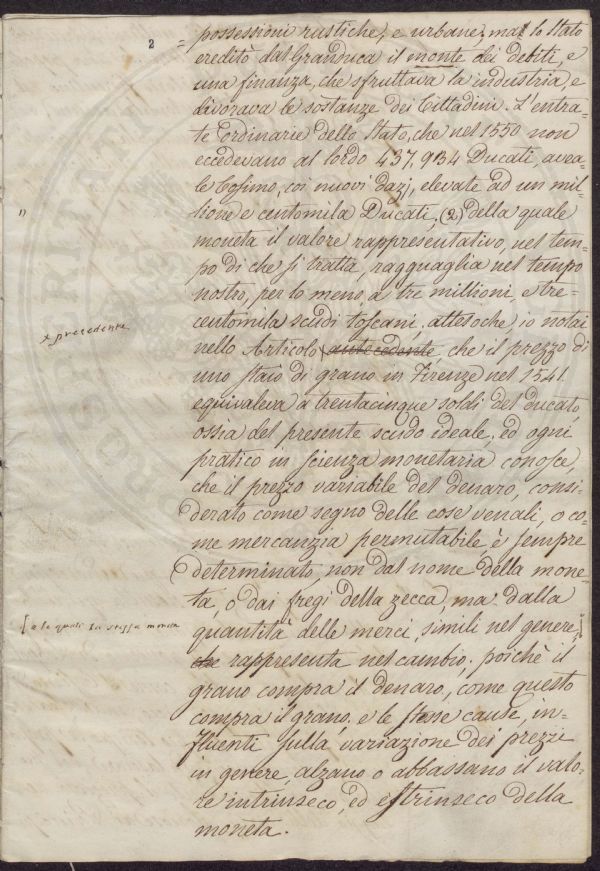 2
= possessioni rustiche, e urbane; ma lo Stato
ereditò dal Granduca il monte dei debiti, e
una finanza, che sfruttava la industria, e
divorava le sostanze dei Cittadini. L'entra=
te Ordinarie dello Stato, che nel 1550 non
eccedevano al lordo 437,934 Ducati, avea=
le Cosimo, coi nuovi dazj, elevate ad un mil=
lione e centomila Ducati, (2) della quale
moneta il valore rappresentativo, nel tem=
po di che si tratta, ragguaglia nel tempo
nostro, per lo meno, a tre millioni, e tre=
centomila scudi toscani, attesoche, io notai
x precedente
nello Articolo antecedente, che il prezzo di
uno staio di grano in Firenze nel 1541.
equivaleva a trentacinque soldi del ducato,
ossia del presente scudo ideale, ed ogni
pratico in scienza monetaria conosce,
che il prezzo variabile del denaro, consi=
derato come segno delle cose venali, o co=
me mercanzia permutabile, è sempre
determinato, non dal nome della mone=
ta, o dai fregi della zecca, ma dalla
[ e le quali la stessa moneta
quantità delle merci, simili nel genere,]
che rappresenta nel cambio; poichè il
grano compra il denaro, come questo
compra il grano, e le stesse cause, in=
fluenti sulla variazione dei prezzi
in genere, alzano o abbassano il valo=
re intrinseco, ed estrinseco della
moneta.